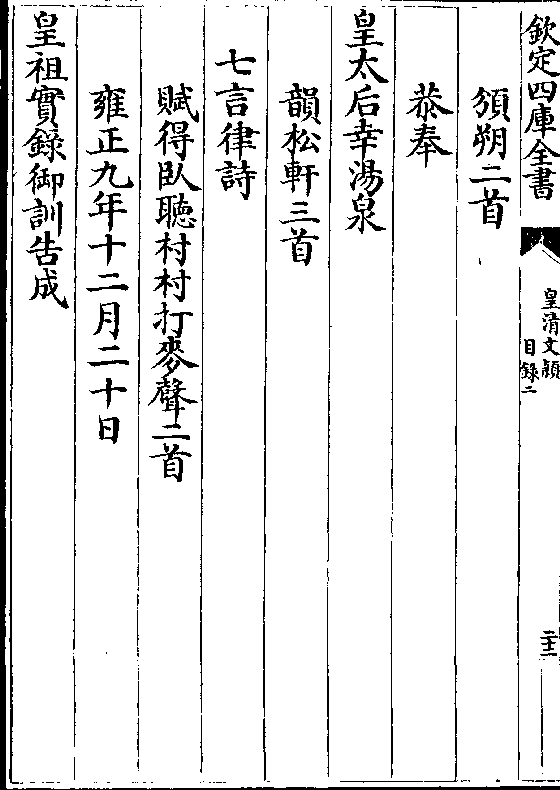 欽定四庫全書
皇清文穎
目錄二
二十二
頒朔二首
恭奉
皇太后幸湯泉
韻松軒三首
七言律詩
賦得臥聽村村打麥聲二首
雍正九年十二月二十日
皇祖實錄御訓告成